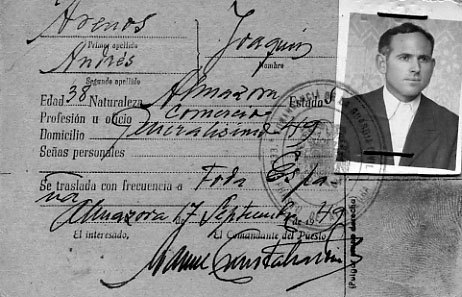 Arenos Joaquin
Primer apellido
Andrés Nombre
Segundo apellido
Edad 38 Naturaleza Almazora Estado
Profesión u oficio Comercio
Domicilio Generalisimo 49
Señas personales
Se traslada con frecuencia a Toda Espa
ña
Almazora 17 Septiembre de 1949
El interesado, El Comandante del Puesto
Manuel